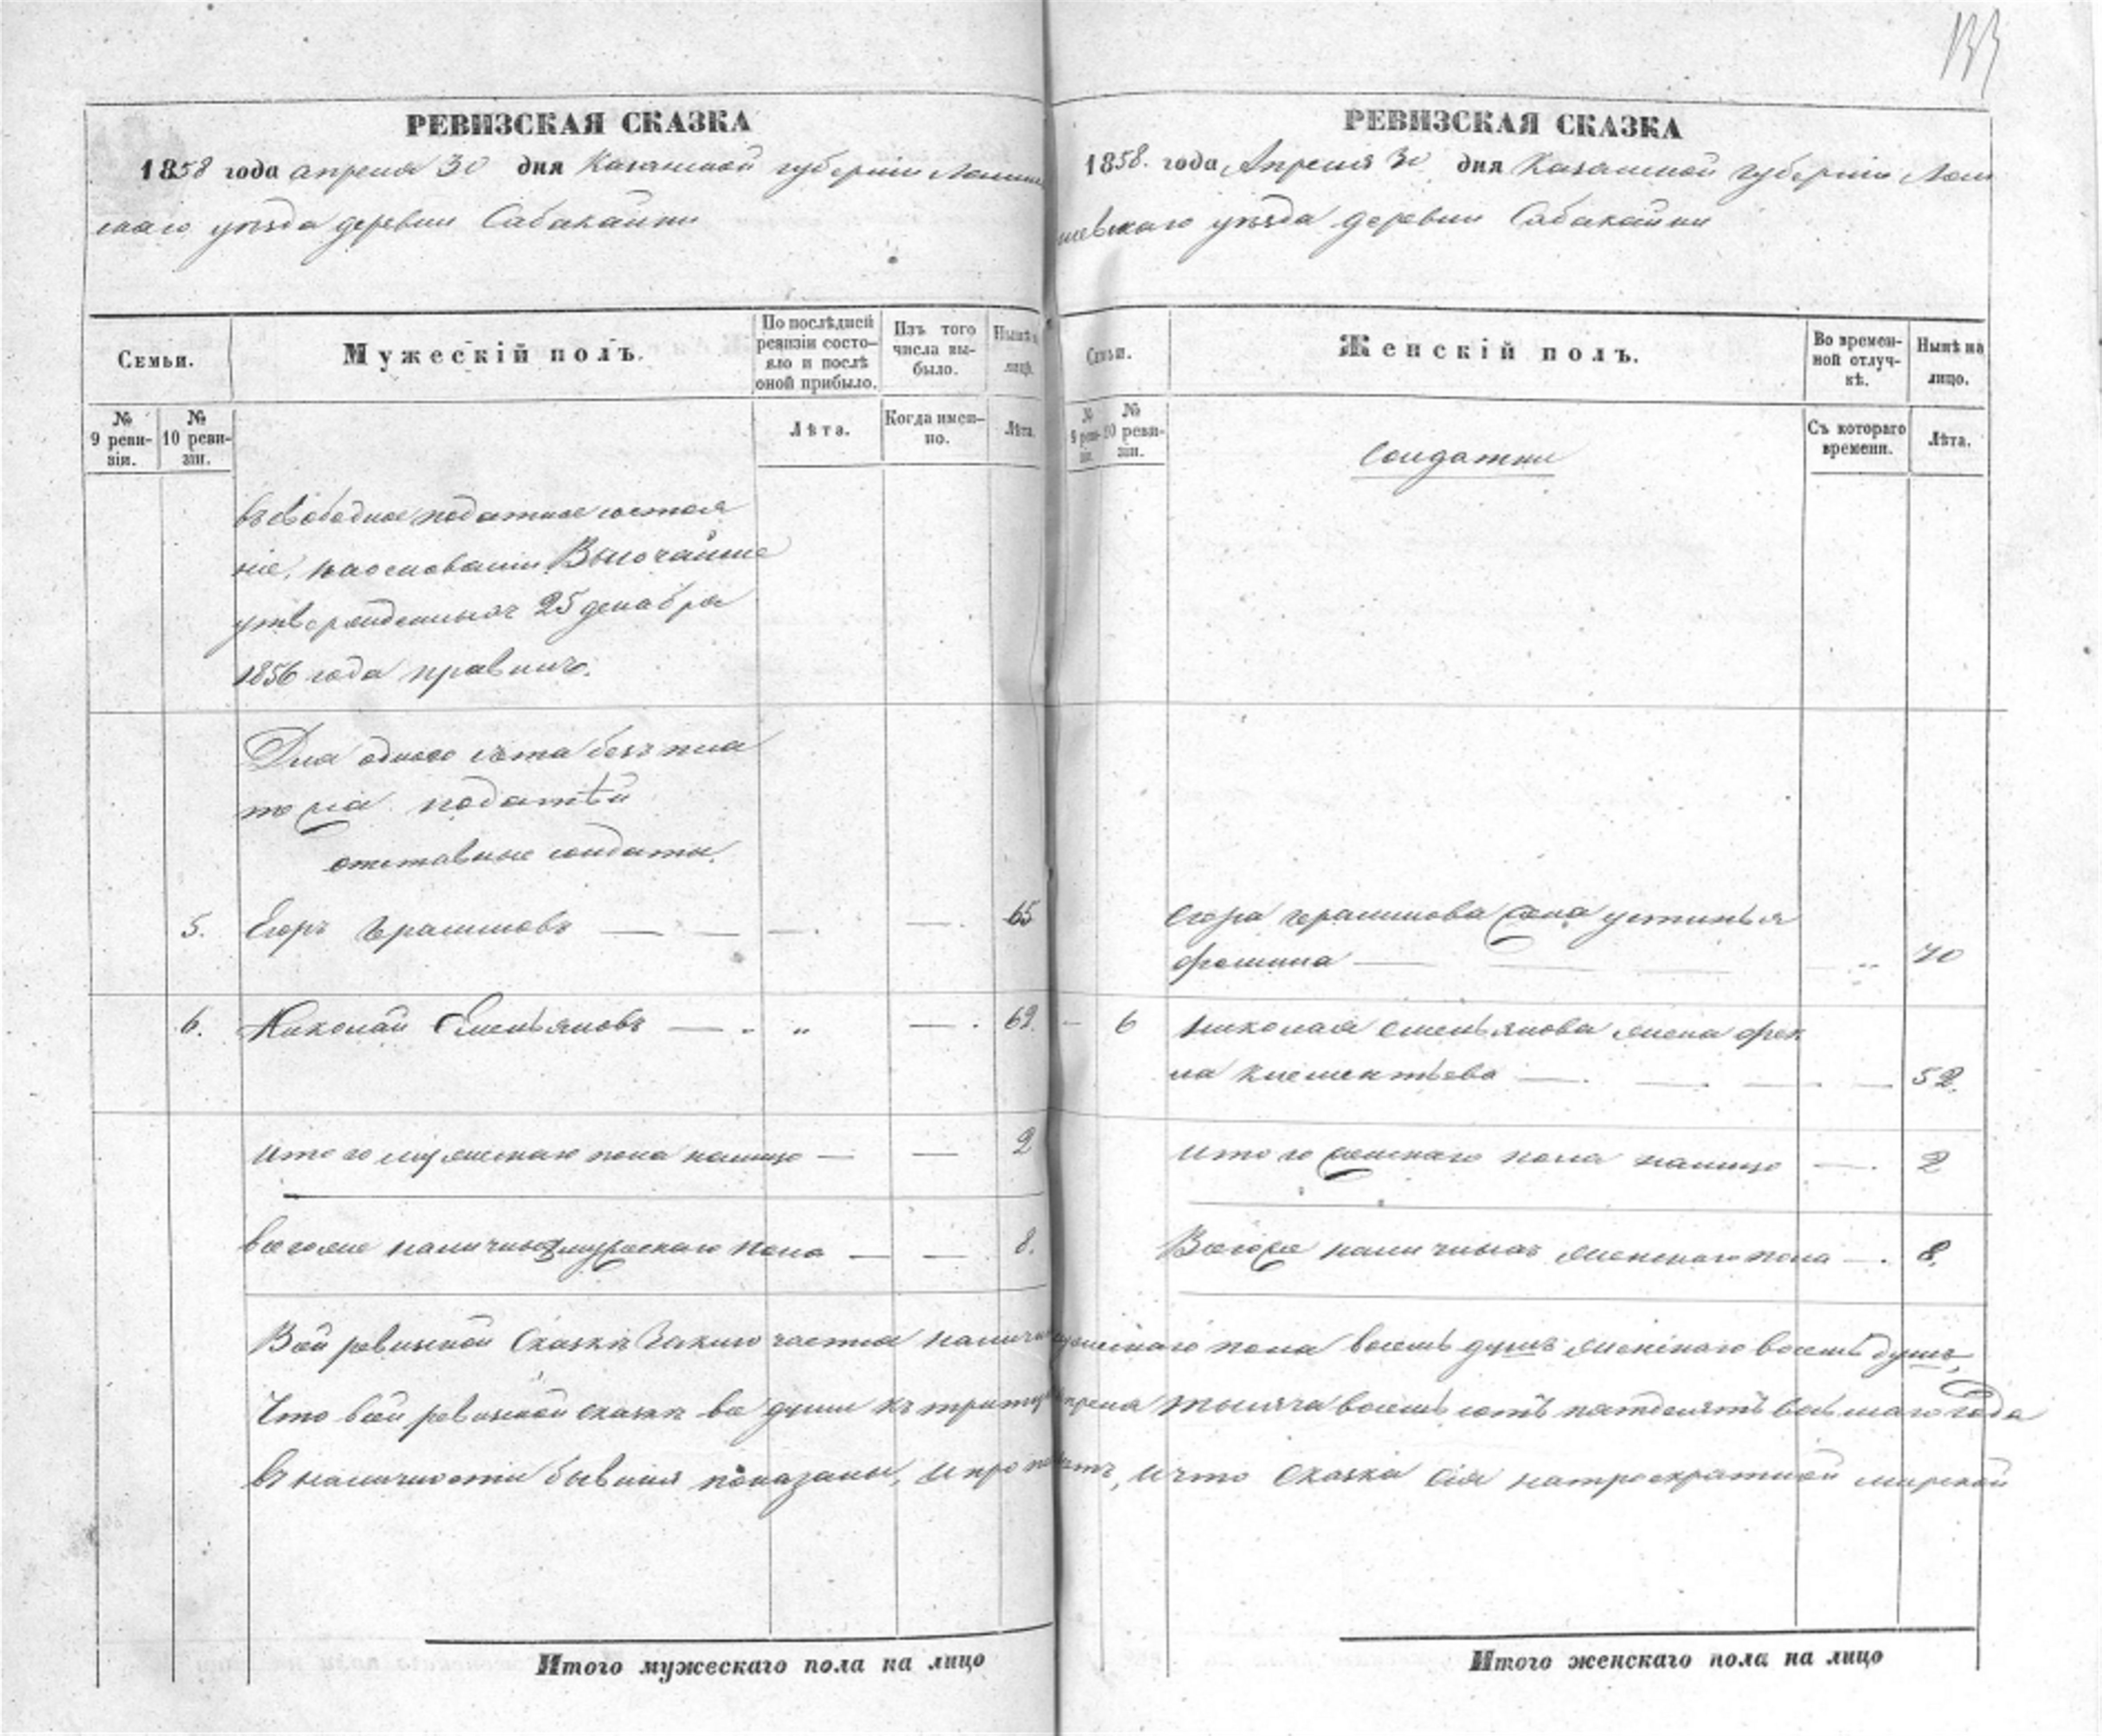 133
РЕВИЗСКАЯ СКАЗКА
1858 года апреля 30 дня Казанской губернiи Лаише
скаго уѣзда деревни Сабакайки
Семьи.
Мужескiй полъ.
По послѣдней ревизiи состо-
яло и послѣ
оной прибыло.
Изъ того
числа вы-
было.
Нынѣ на
лицо.
№
9 реви-
зiи.
№
10 реви-
зiи.
Лѣта.
Когда имен-
но.
Лѣта.
въ свободное податное состоя
нiе, на основанiи Высочайше
утвержденныхъ 25 декабря
1856 года правилъ.
Для одного счета безъ пла
тежа податѣй
отставные солдаты.
5. Егоръ Герасимовъ — — — — 65
6. Николай Емельяновъ — „ — 69.
Итого мужескаго пола налицо — — 2
Всего же наличныхъ мужескаго пола — — 8.
РЕВИЗСКАЯ СКАЗКА
1858. года Апреля 30 дня Казанской Губернiи Лаи
шевскаго уѣзда деревни Сабакайки
Семьи.
Женскiй полъ.
Во времен-
ной отлуч-
кѣ.
Нынѣ на
лицо.
№
9 реви-
зiи.
№
10 реви-
зiи.
Солдатки
Съ котораго
времени.
Лѣта.
Егора Герасимова жена устинья
фомина — — — „ 70
6 Николая емельянова жена фек
ла клементьева — — — — 52.
Итого женскаго пола налицо — 2
Всегоже наличныхъ женскаго пола — 8.
Всей ревизской Сказкѣ Заключается налично мужескаго пола восемь душъ женскаго восемь душъ,
Что всей ревизской сказкѣ все души къ апреля тысяча восемь сотъ пятдесятъ восьмаго года
въ наличности бывшия показаны, и что Сказка сiя натроекратной мирской
Итого мужескаго пола на лицо
Итого женскаго пола на лицо